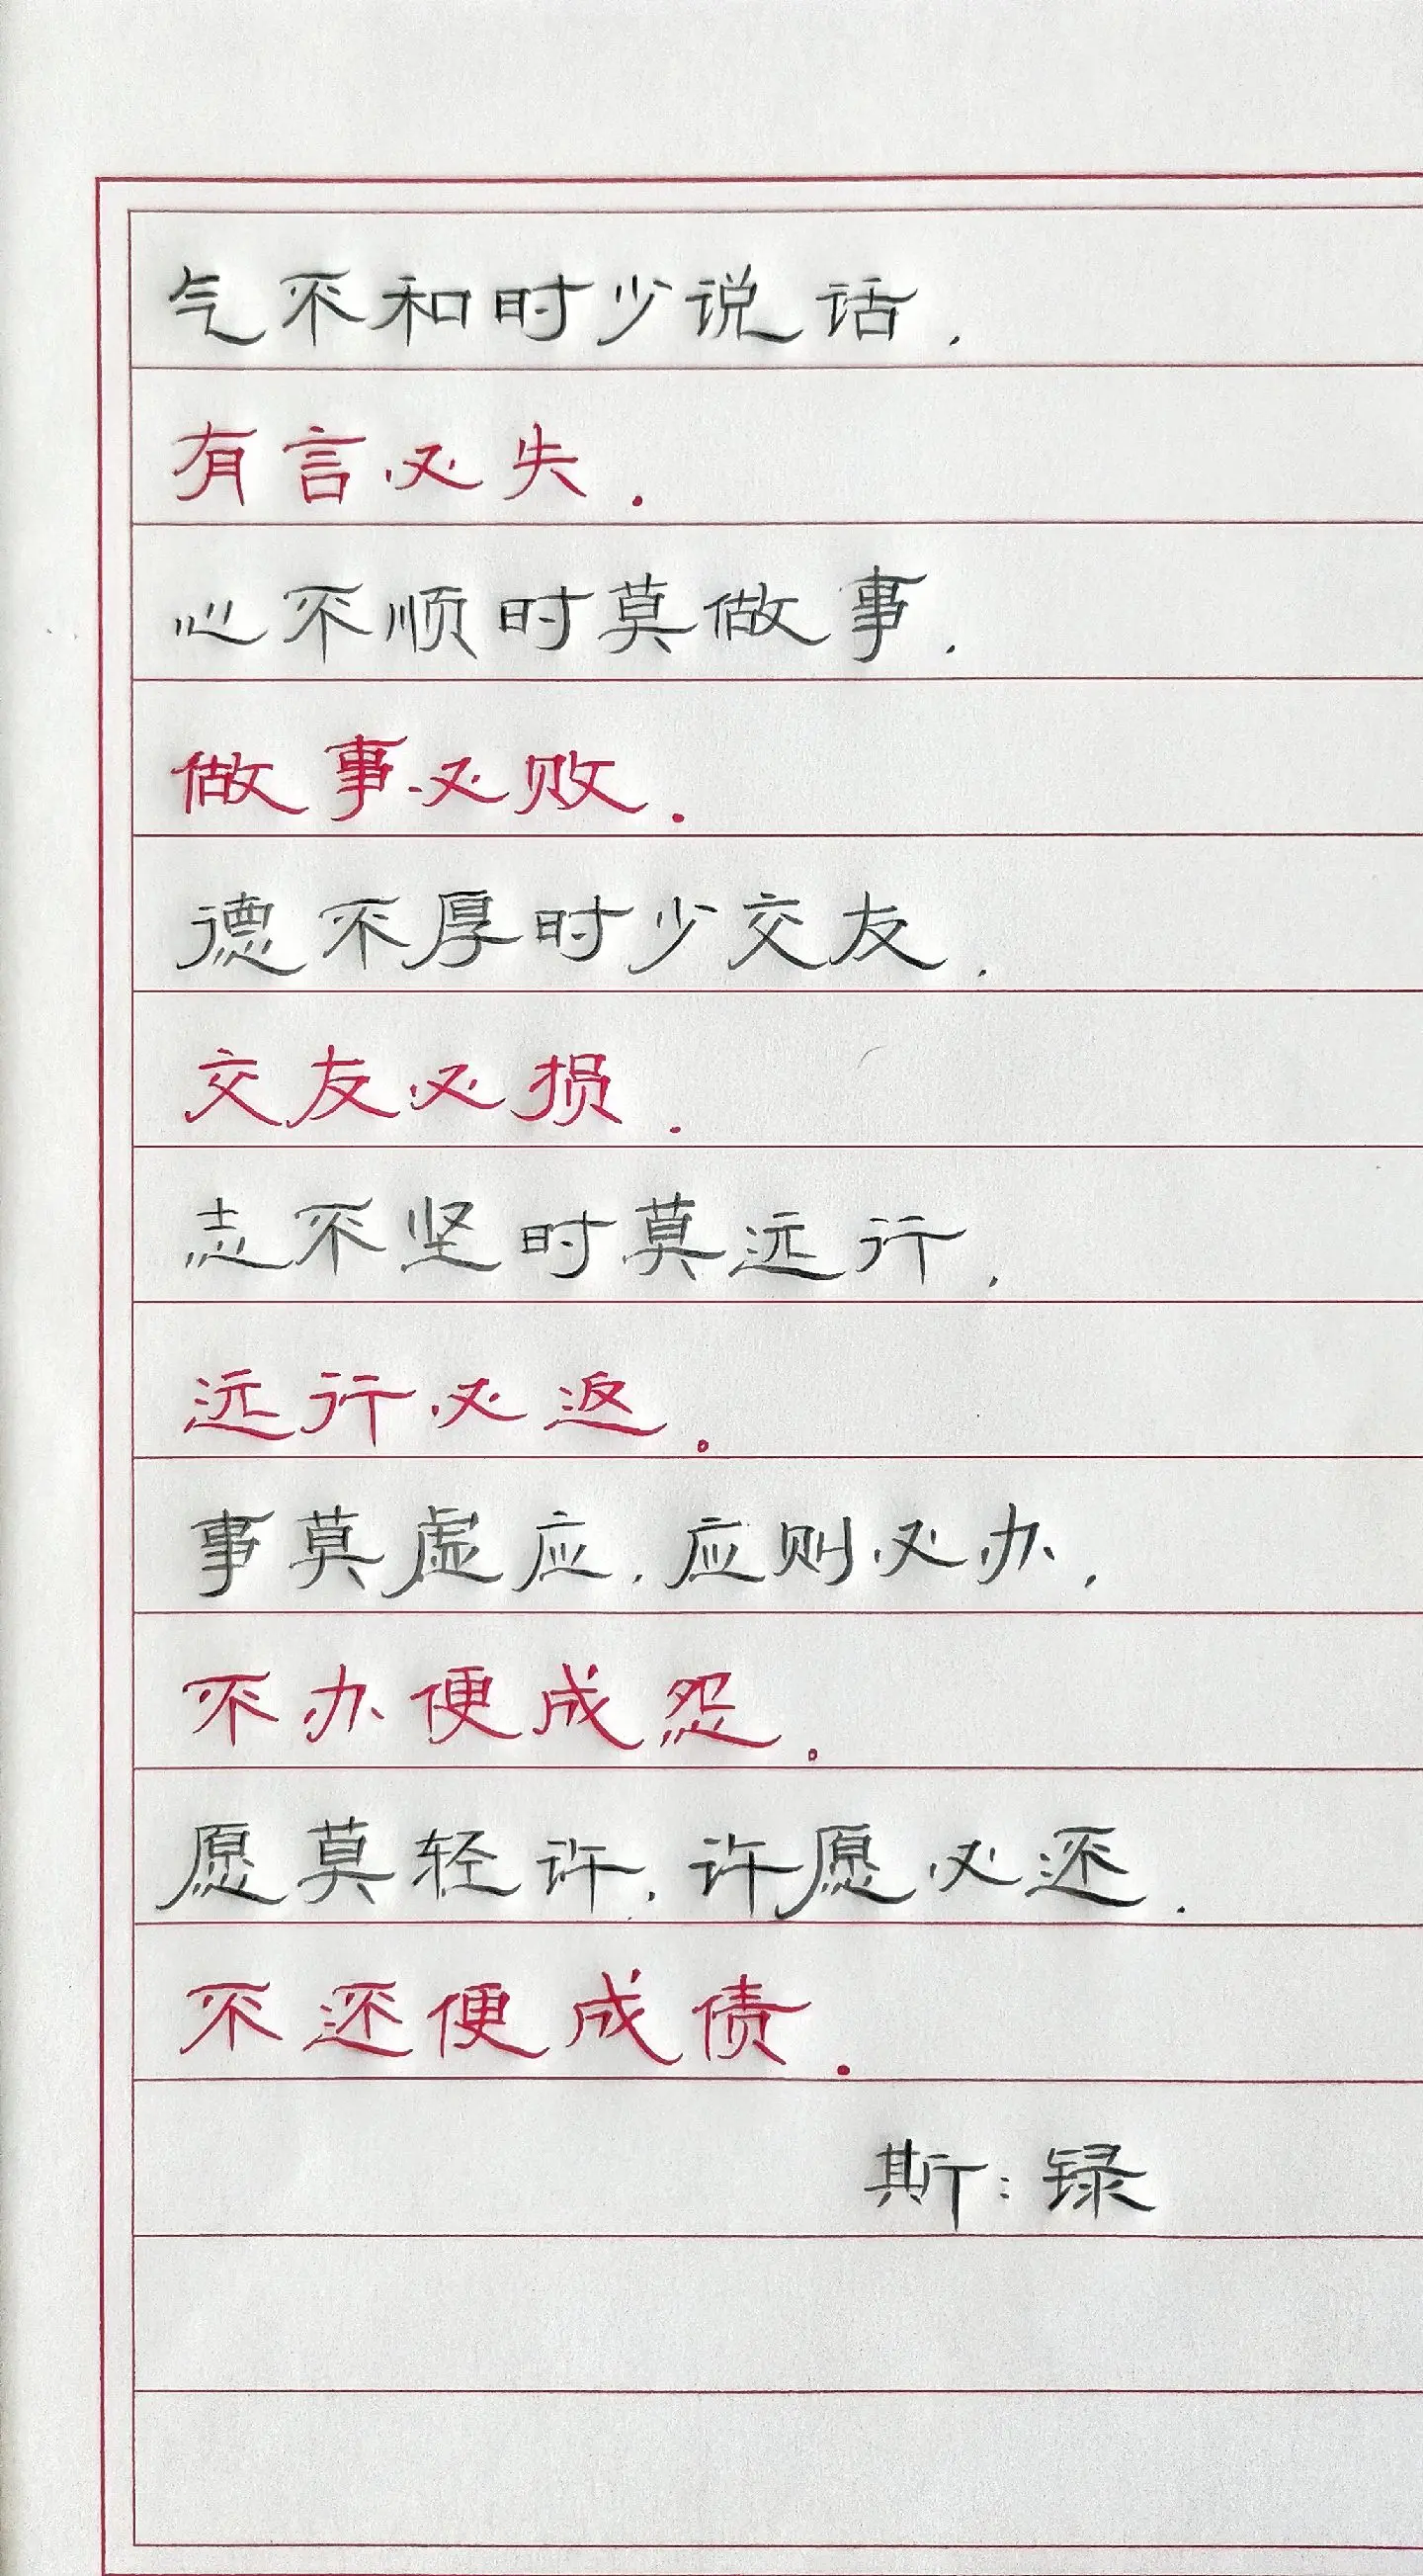 气不和时少说话,
有言必失.
心不顺时莫做事.
做事必败.
德不厚时少交友.
交友必损.
志不坚时莫远行,
远行必返。
事莫虚应,应则必办,
不办便成怨。
愿莫轻许,许愿必还.
不还便成债.
斯:録